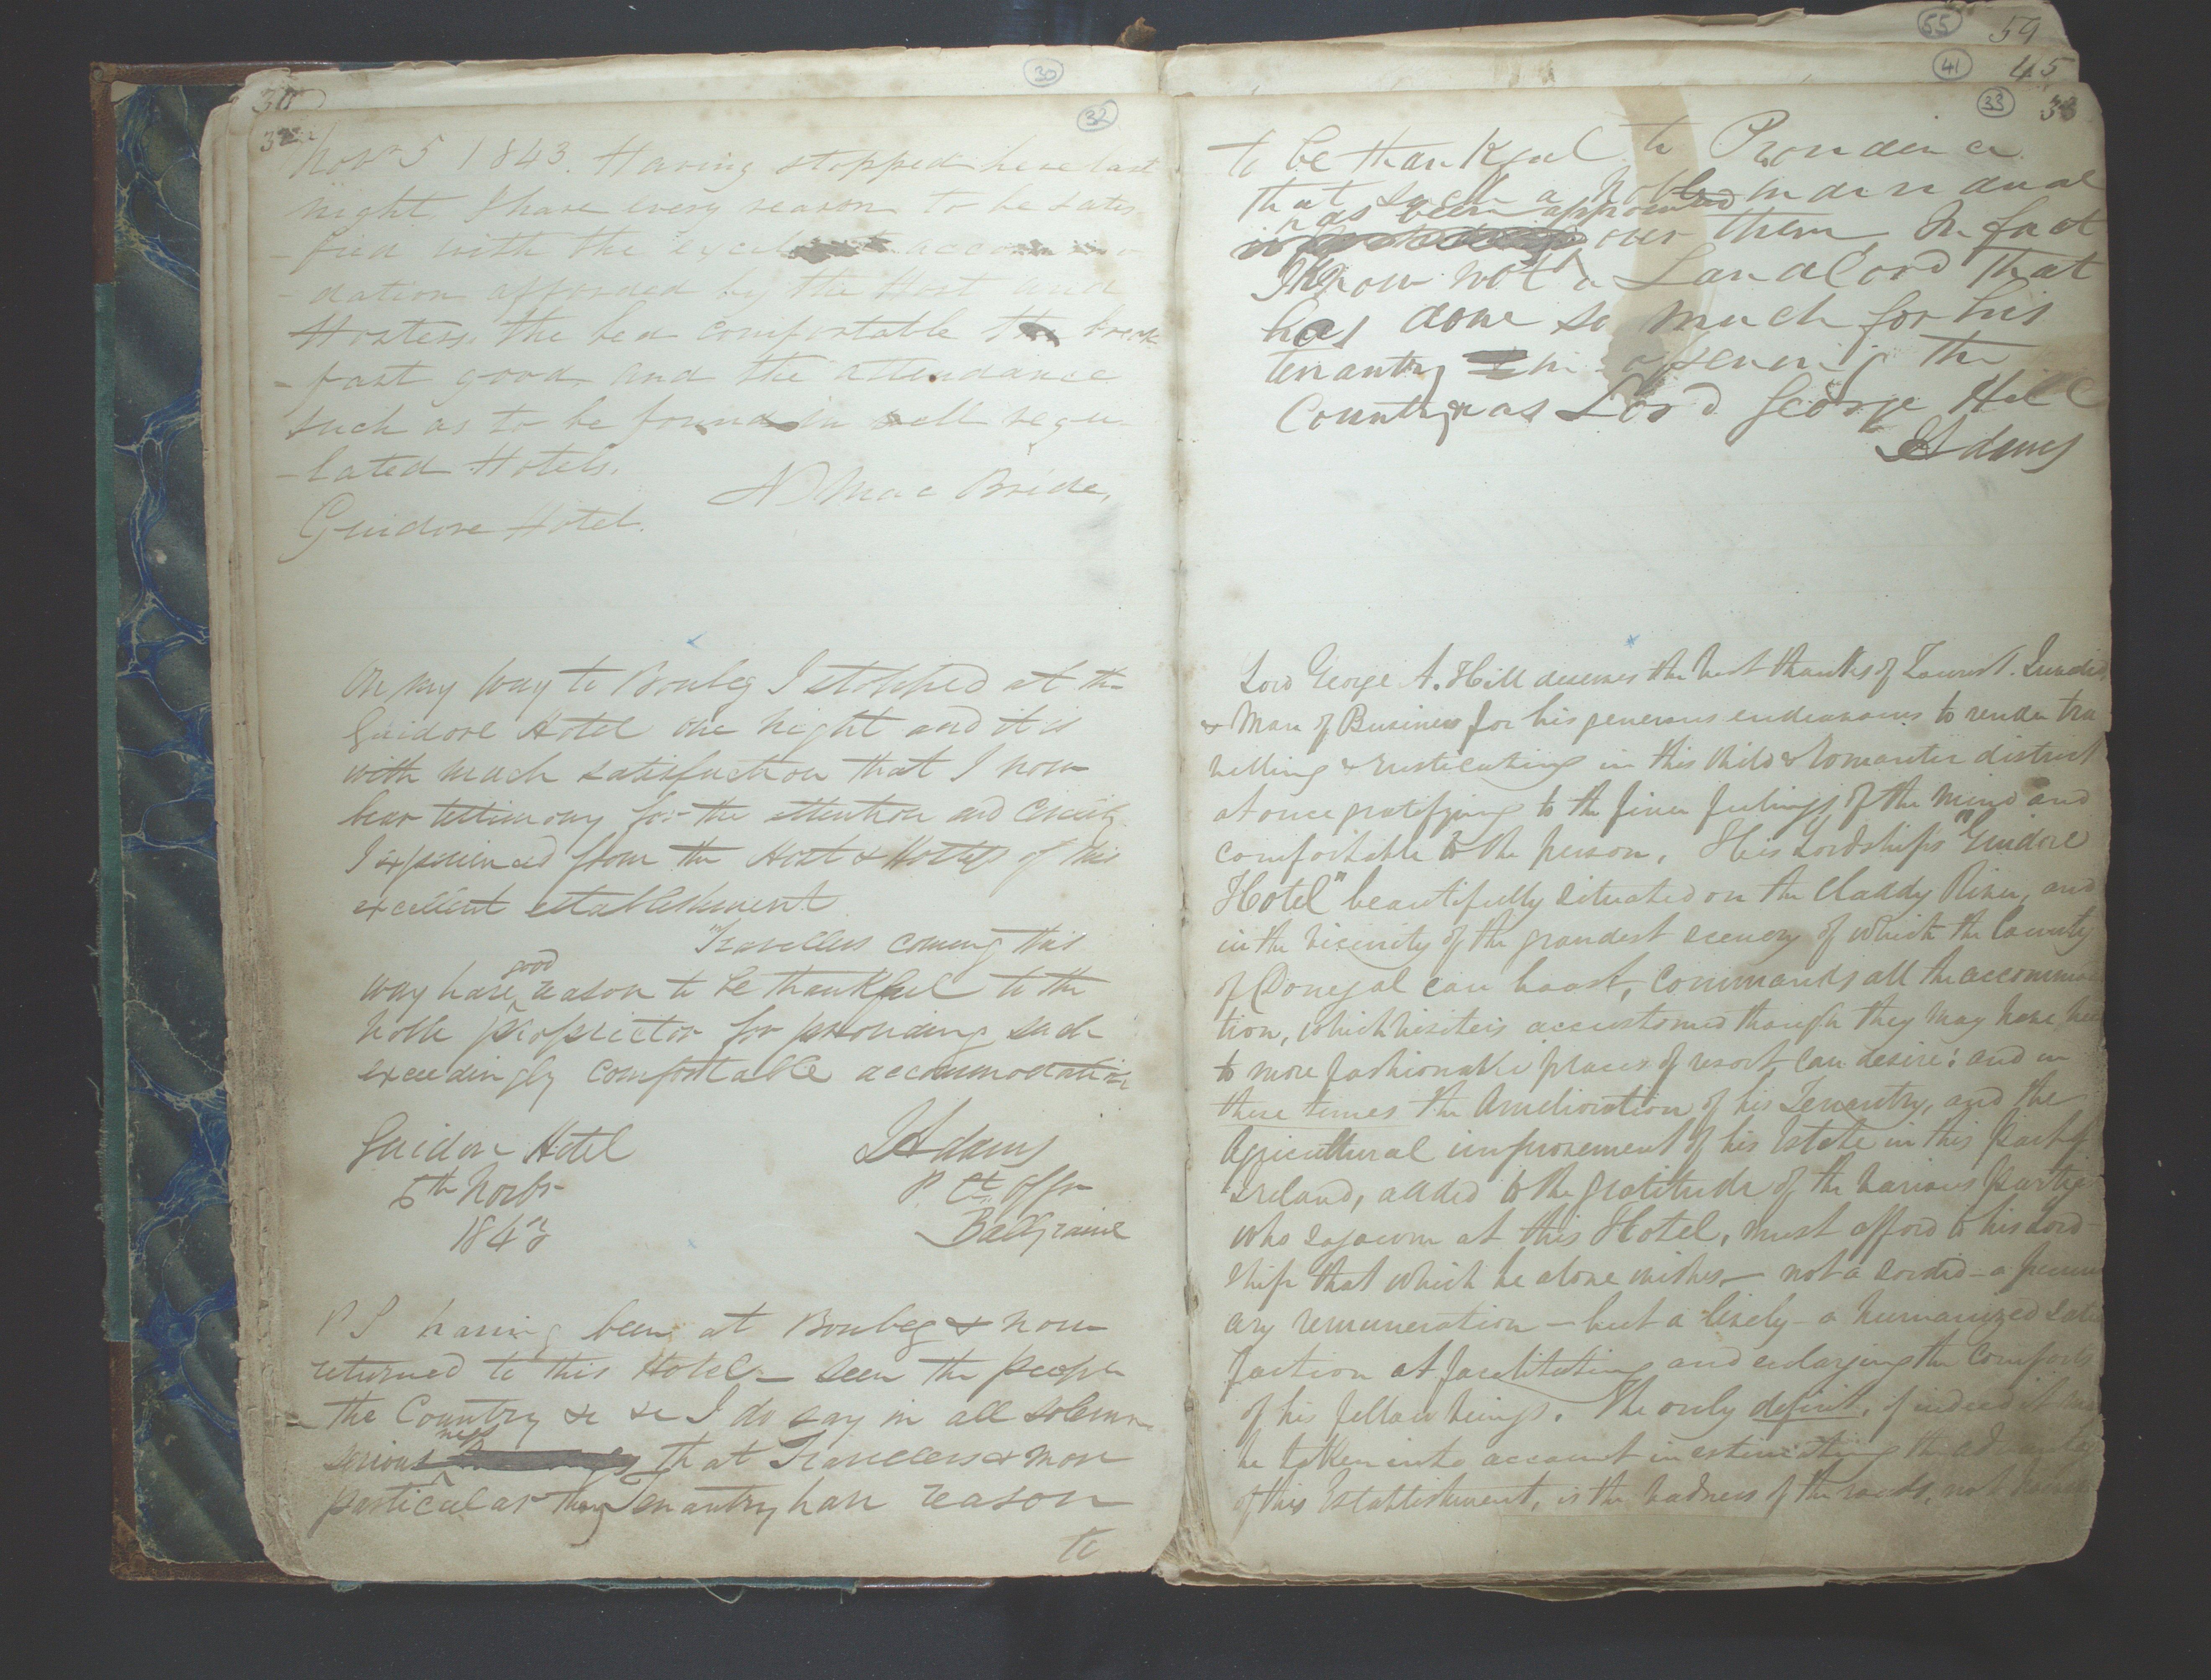 30
30
32
32
Novr 5 1843. Having stopped here last
night I have every reason to be satis
-fied with the excellent accommo
-dation afforded by the Host and
Hostess. the bed comfortable the break
-fast good, and the attendance
such as to be found in well regu
-lated Hotels.
N Mac Bride,
Guidore Hotel.
On my way to Bonbeg I stopped at the
Guidore Hotel one night and it is
with much satisfaction that I now
bear testimony for the attention and civility
I experienced from the Host & Hostess of this
excellent establishment
Travellers coming this
way have good reason to be thankful to the
noble proprietor for providing such
exceedingly comfortable accommodation
Guidore Hotel
JAdams
5th Novbr
P. Ct. Offr
1843
Ballyraine
P S having been at Bonbeg & now
returned to this Hotel – seen the people
the Country &c &c I do say in all solemn
seriousness that Travellers & more
particular the Tenantry have reason
to
55 59
41 45
33 33
to be thankful to Providence
that such a Noble individual
has been appointed
over them, In fact
I know not a Landlord that
has done so much for his
tenantry in opening the
Country as Lord George Hill
JAdams
Lord George A. Hill deserves the best thanks of Tourist.
& Man of Business for his generous endeavours to render tra
velling & rusticating in this Wild & Romantic district
at once gratifying to the finer feelings of the Mind and
comfortable to the person. His Lordship's "Guidore
Hotel" beautifully situated on the Claddy River, and
in the vicinity of the grandest scenery of which the County
of Donegal can boast, commands all the accommoda
tion, which visiters accustomed though they may have been
to more fashionable places of resort can desire: and in
these times the Amelioration of his Tenantry, and the
Agricultural improvement of his Estate in this Part of
Ireland, added to the gratitude of the various parties
who sojourn at this Hotel, must afford to his Lord-
ship that which he alone wishes, – not a sordid – a pecuni
ary remuneration – but a lively – a humanized satis
faction at facilitating and enlarging the comforts
of his fellow beings. The only deficit, if indeed it may
be taken into account in estimating the advantages
of this Establishment, is the badness of the roads, not